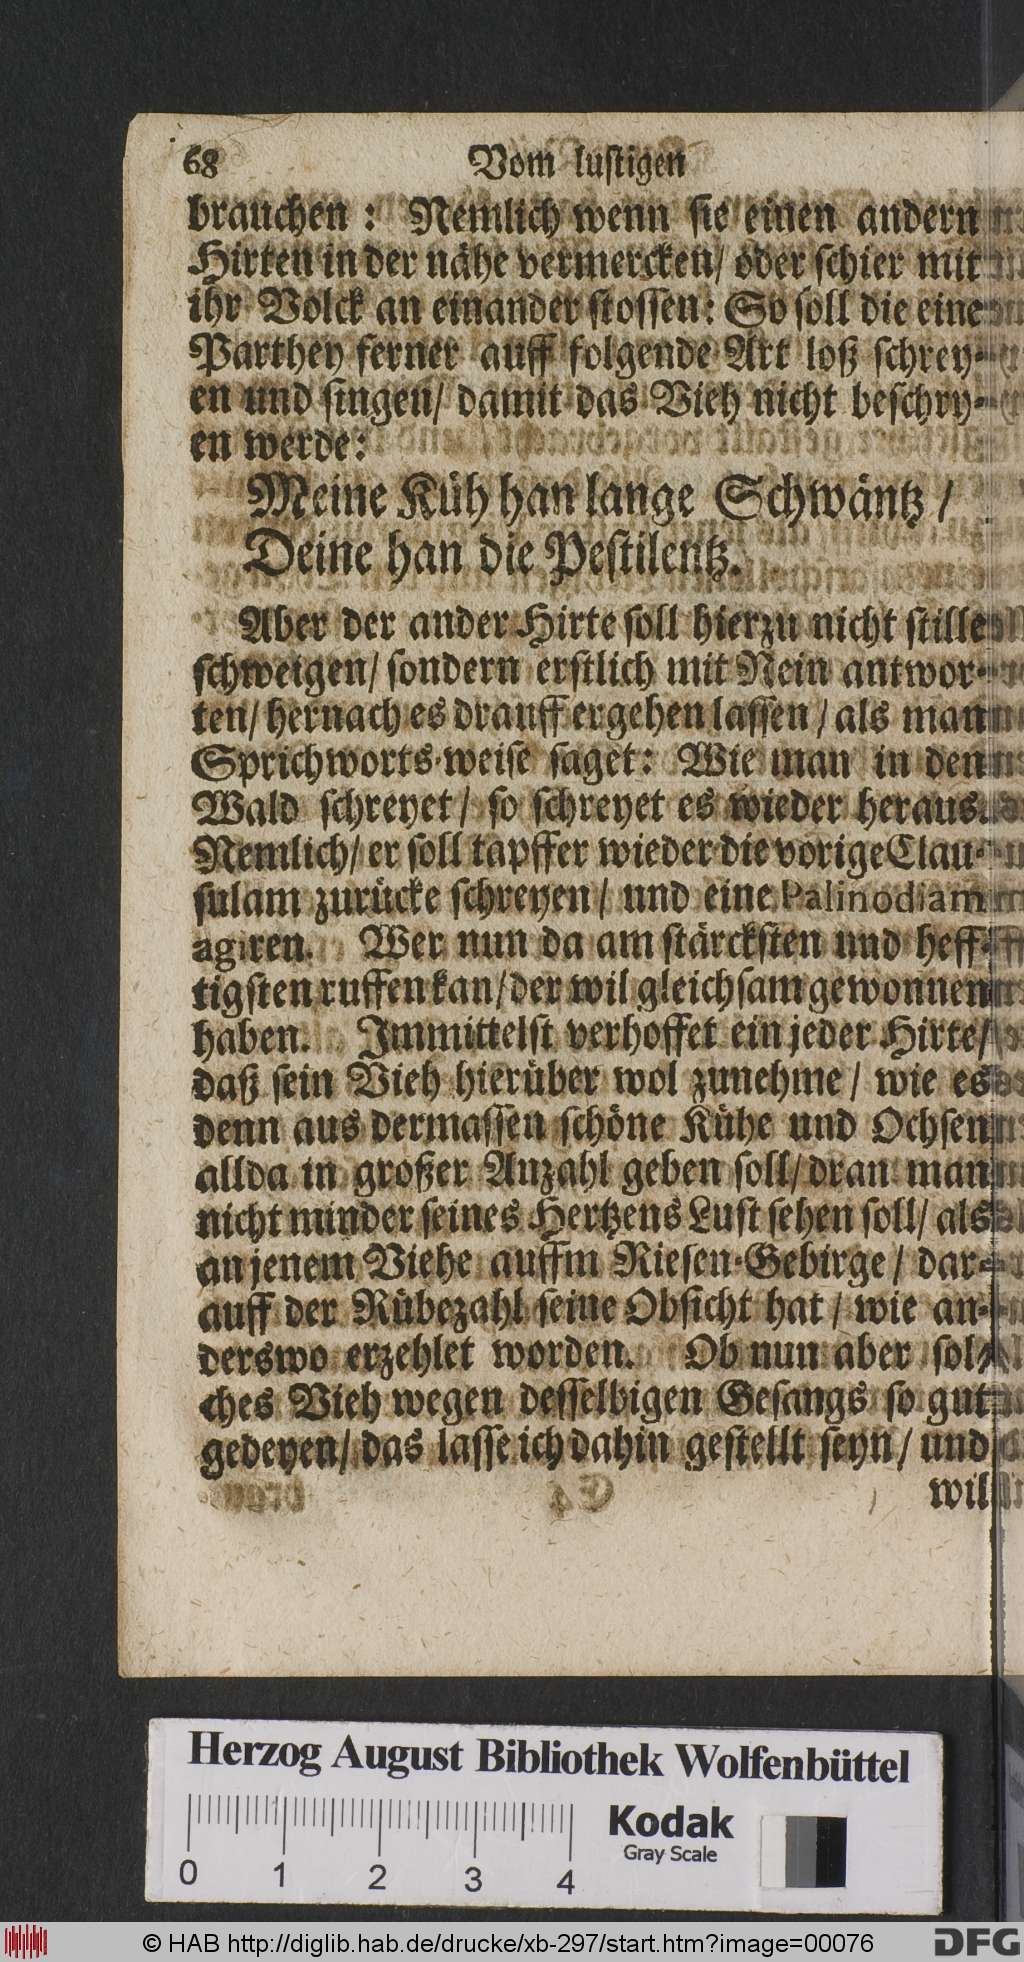 68 Vom lustigen
brauchen: Nemlich wenn sie einen andern
Hirten in der nähe vermercken/ oder schier mit
ihr Volck an einander stossen: So soll die eine
Parthey ferner auff folgende Art loß schrey-
en und singen/ damit das Vieh nicht beschry-
en werde:
Meine Küh han lange Schwäntz /
Deine han die Pestilentz.
Aber der ander Hirte soll hierzu nicht stille
schweigen/ sondern erstlich mit Nein antwor-
ten/ hernach es drauff ergehen lassen / als man
Sprichworts-weise saget: Wie man in den
Wald schreyet/ so schreyet es wieder heraus.
Nemlich/ er soll tapffer wieder die vorige Clau-
sulam zurücke schreyen/ und eine Palinodiam
agiren. Wer nun da am stärcksten und heff-
tigsten ruffen kan/ der wil gleichsam gewonnen
haben. Immittelst verhoffet ein jeder Hirte/
daß sein Vieh hierüber wol zunehme / wie es
denn aus dermassen schöne Kühe und Ochsen
allda in großer Anzahl geben soll/ dran man
nicht minder seines Hertzens Lust sehen soll/ als
an jenem Viehe auffm Riesen-Gebirge / dar-
auff der Rübezahl seine Obsicht hat / wie an-
derswo erzehlet worden. Ob nun aber sol-
ches Vieh wegen desselbigen Gesangs so gut
gedeyen/ das lasse ich dahin gestellt seyn/ und
wil
Herzog August Bibliothek Wolfenbüttel
0 1 2 3 4
Kodak
Gray Scale
© HAB http://diglib.hab.de/drucke/xb-297/start.htm?image=00076
DFG